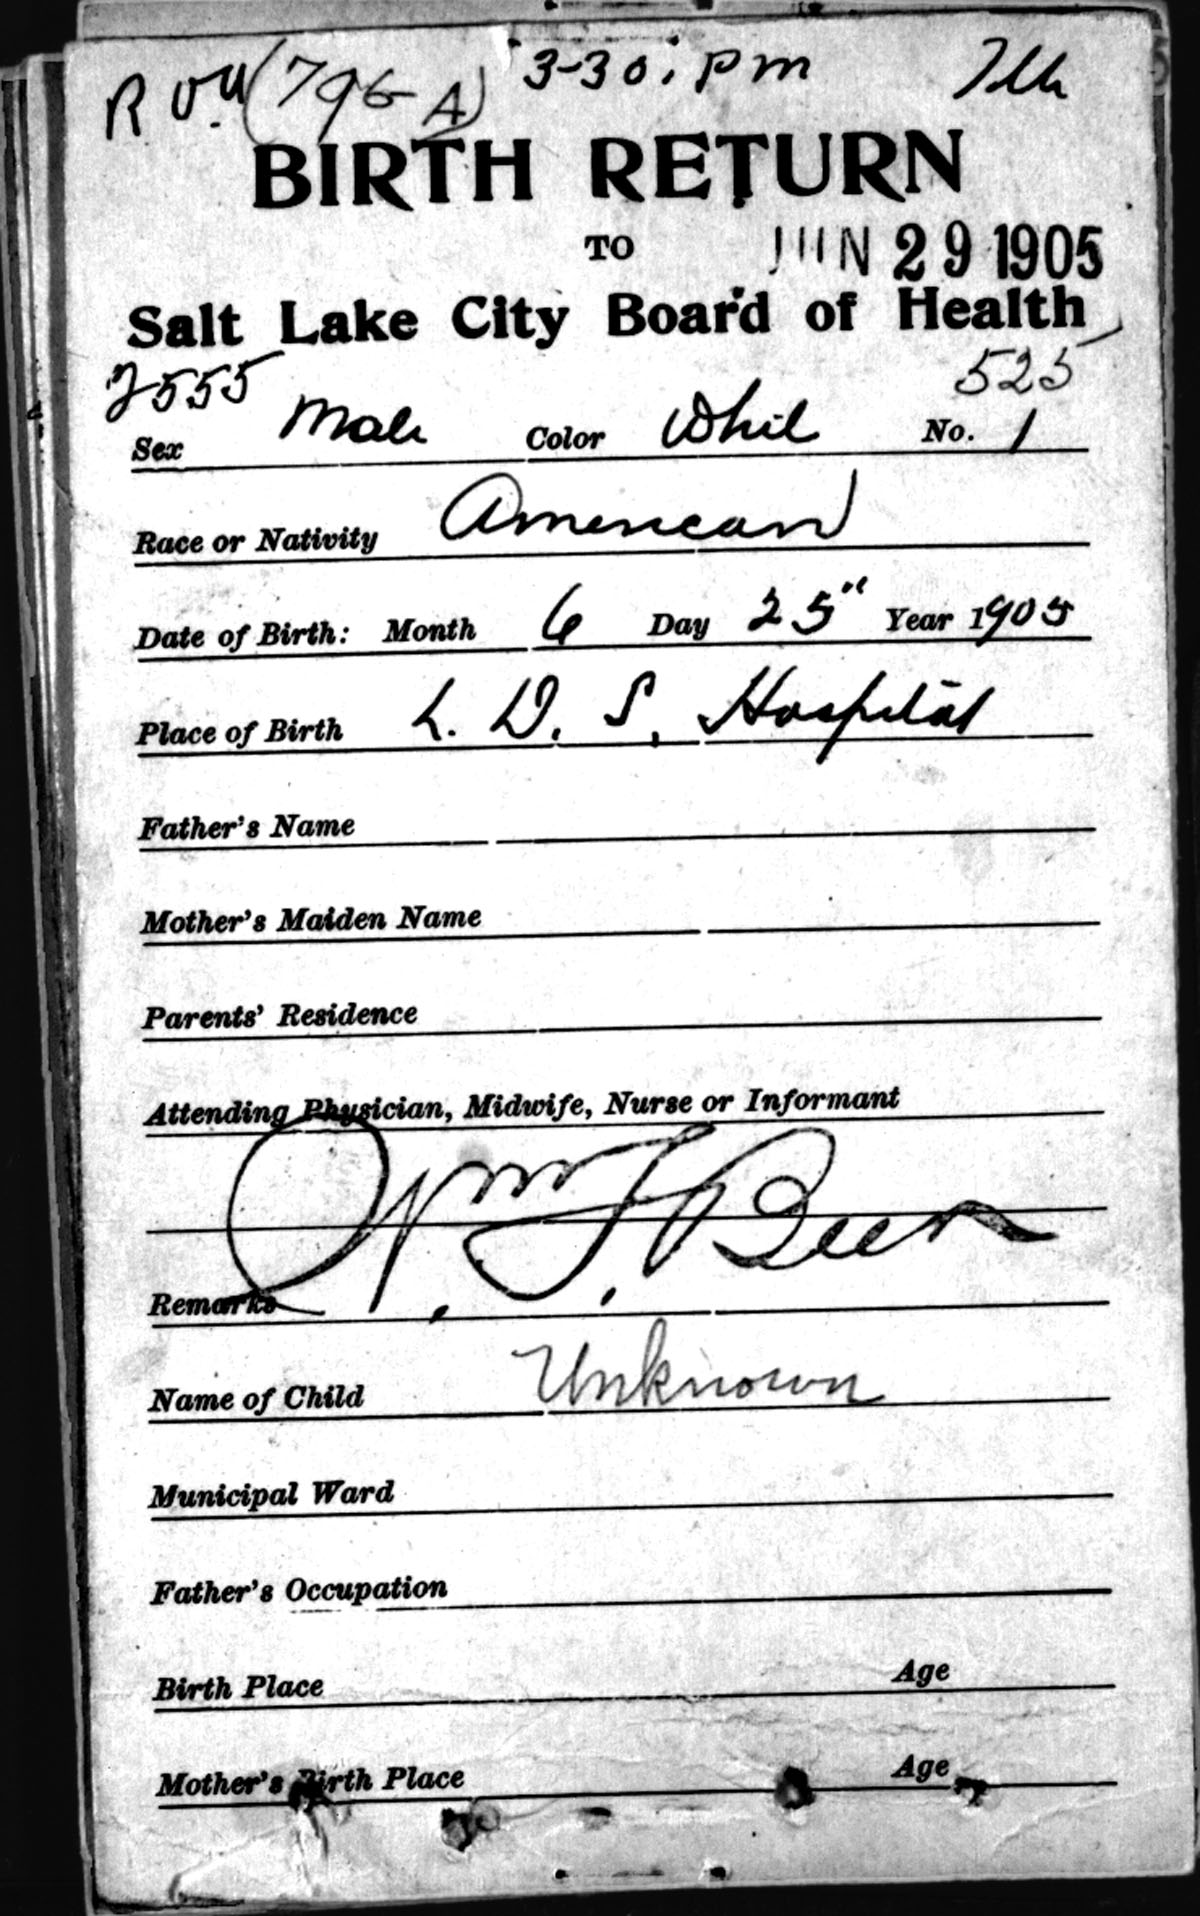 (796-A) 3-30. pm
BIRTH RETURN
TO JUN 29 1905
Salt Lake City Board of Health
2555 525
Sex Male Color White No. 1
Race or Nativity American
Date of Birth: Month 6 Day 25" Year 1905
Place of Birth L. D. S. Hospital
Father's Name
Mother's Maiden Name
Parents' Residence
Attending Physician, Midwife, Nurse or Informant
Wm. F. Beer
Remarks
Name of Child Unknown
Municipal Ward
Father's Occupation
Birth Place Age
Mother's Birth Place Age